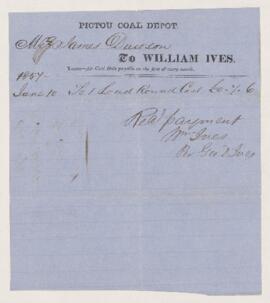 PICTOU COAL DEPOT.
James Dawson
To WILLIAM IVES.
Terms—for Coal Bills payable on the first of every month.
1857
June 10 To 1 Load Round Coal £0-7-6
Recd payment
Wm Ives
Per Geo Ives